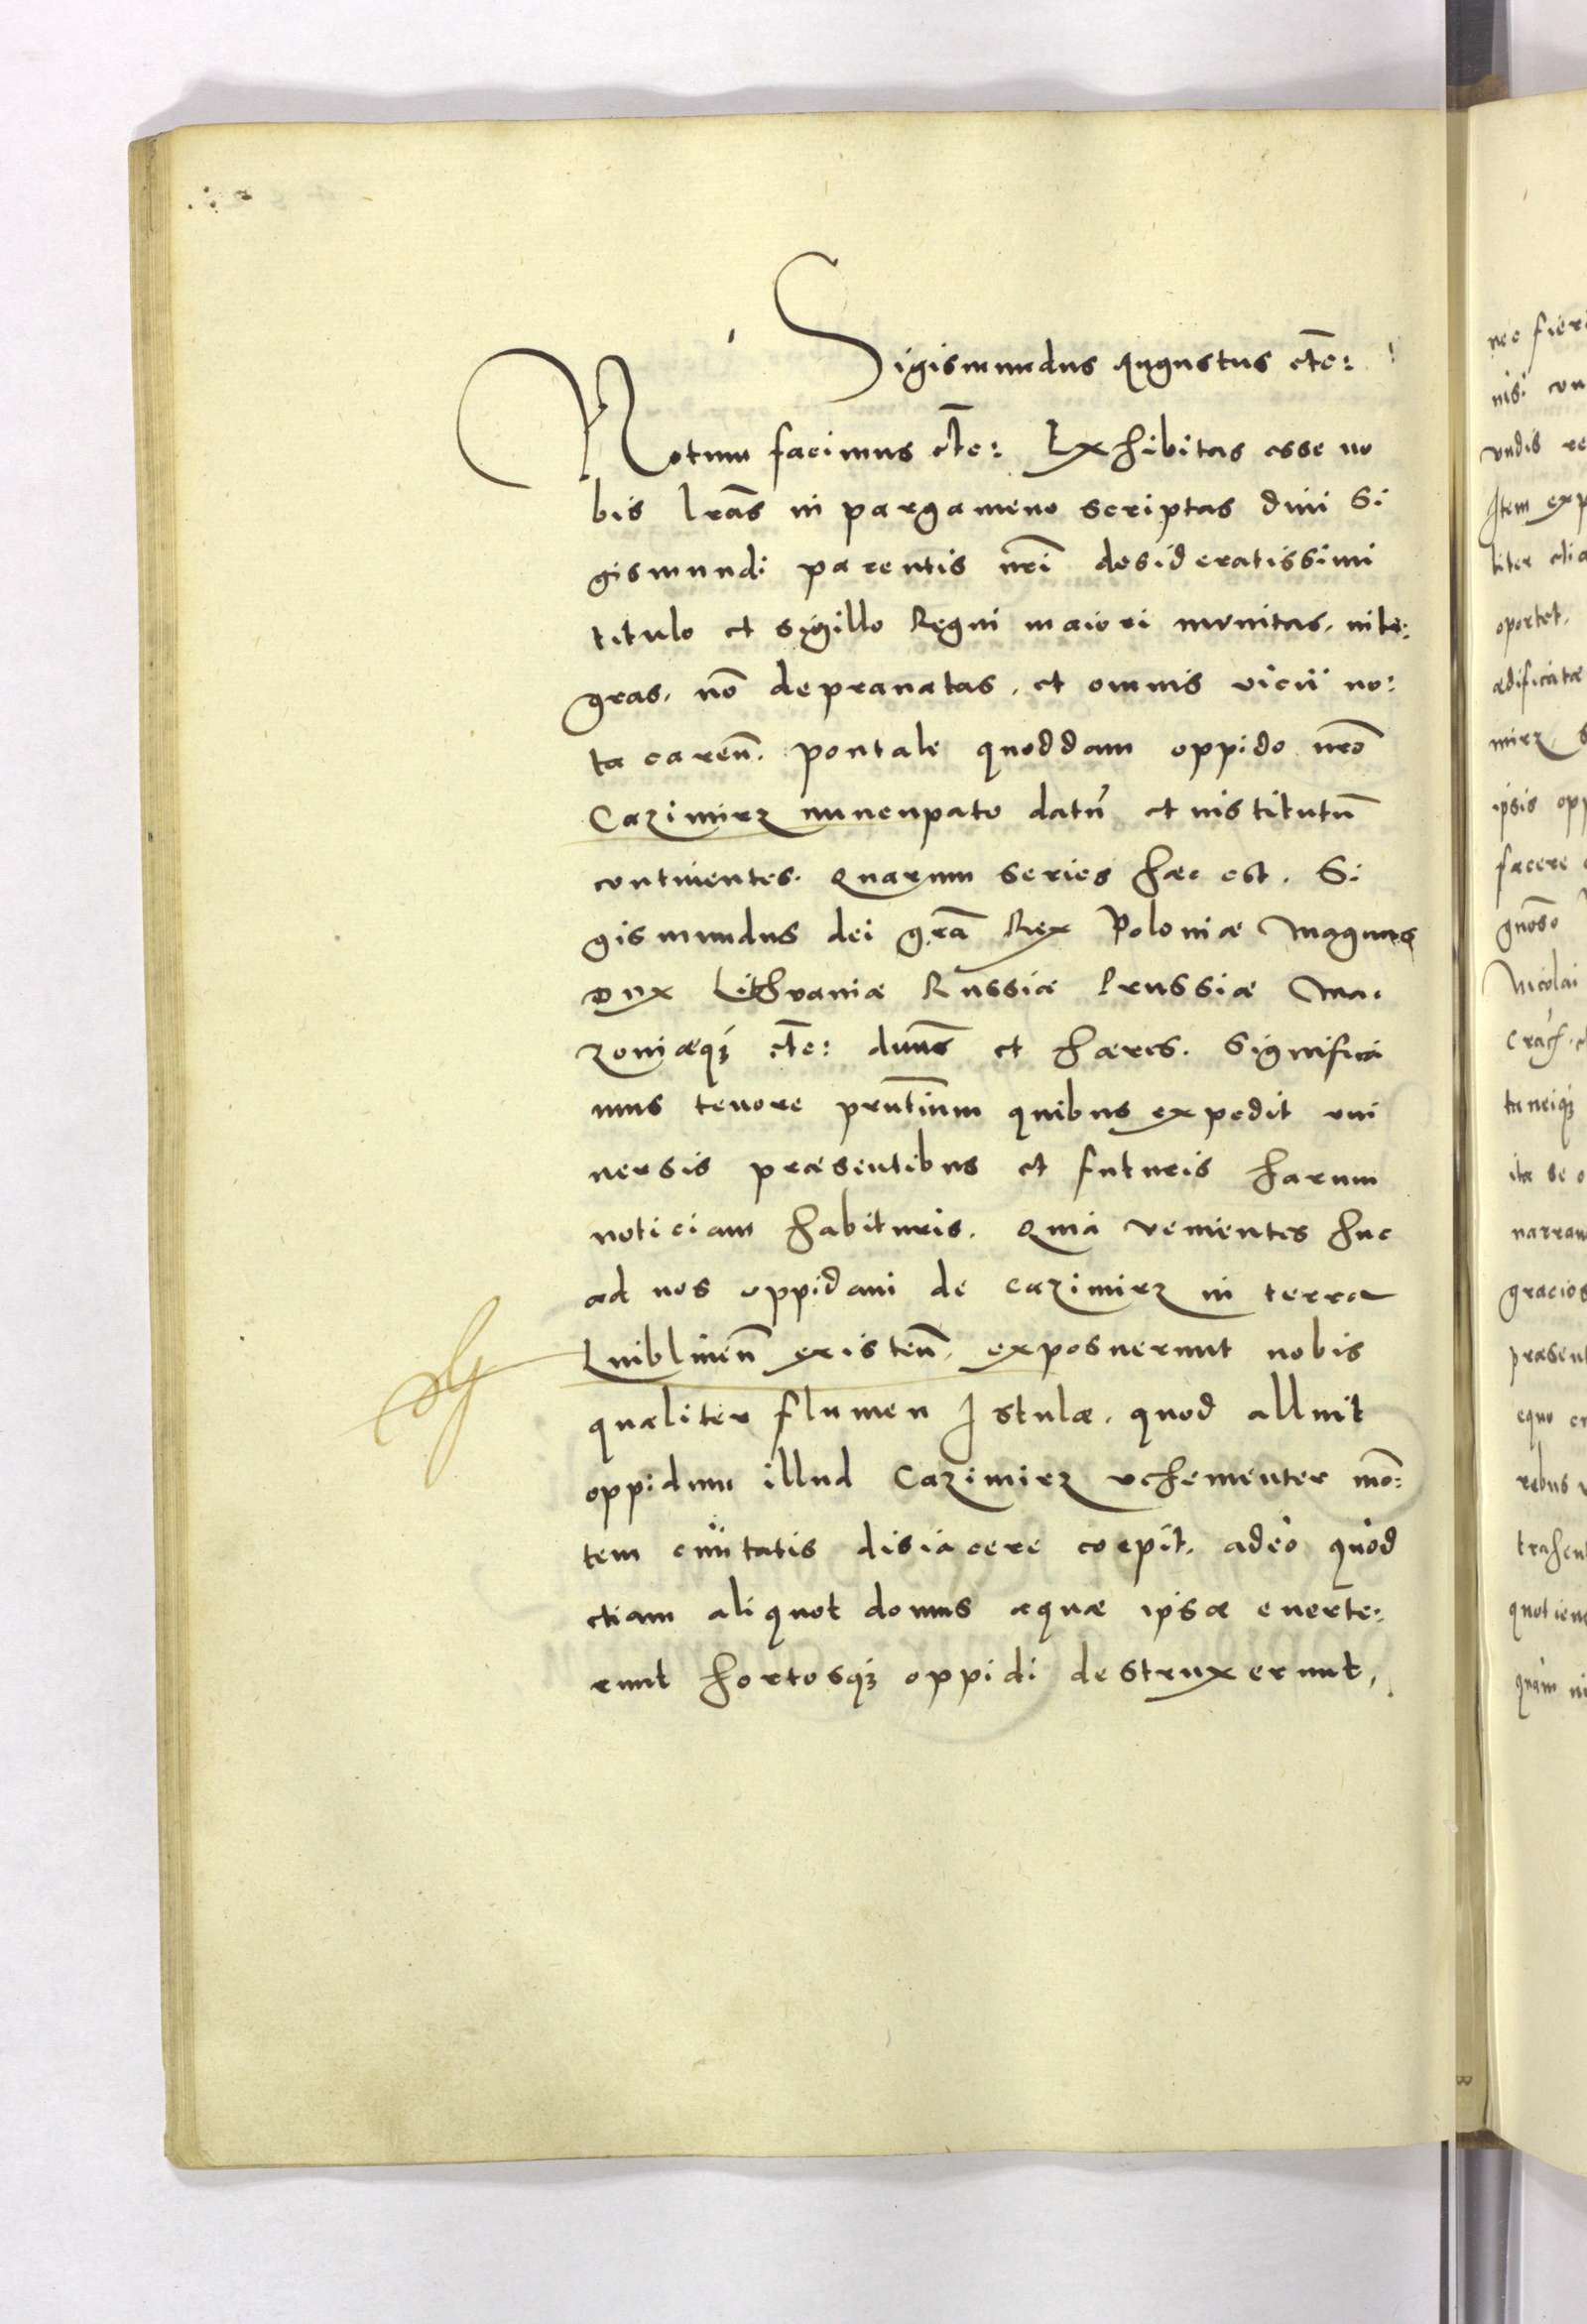 Sigismundus Augustus etc̄:
Notum facimus etc̄: Exhibitas esse no
bis lr̄as in pargameno scriptas diui Si
gismundi parentis nr̄i desideratissimi
titulo et sigillo Regni maiori munitas, inte:
gras, nō deprauatas, et omnis vicii no:
ta caren̄. pontale quoddam oppido nr̄o
Cazimirz nuncupato datū et institutū
continentes. Quarum series haec est. Si
gismundus dei gr̄a Rex Poloniæ Magnus
Dux Lithvaniæ Russiæ Prussiæ Ma:
zouiæq3 etc̄: dnus̄ et hæres. Significa
mus tenore prn̄tium quibus expedit vni
uersis præsentibus et futuris harum
noticiam habituris. Quia venientes huc
ad nos oppidani de Cazimirz in terra
Lublinen̄ existen̄, exposuerunt nobis
qualiter flumen Istulæ, quod alluit
oppidum illud Cazimirz vehementer mō:
tem ciuitatis disiacere coepit, adeo quod
etiam aliquot domus aquæ ipsæ euerte:
runt hortosq3 oppidi destruxerunt,
nec fieri
nisi con
vndis re
Item exp
liter etia
oportet,
ædificatæ
mirz
ipsis opp
facere
gnoso
Nicolai
Crac̄
ita se o
narran
gracios
præsent
equo
rebus
trahen
quotien
quam ni